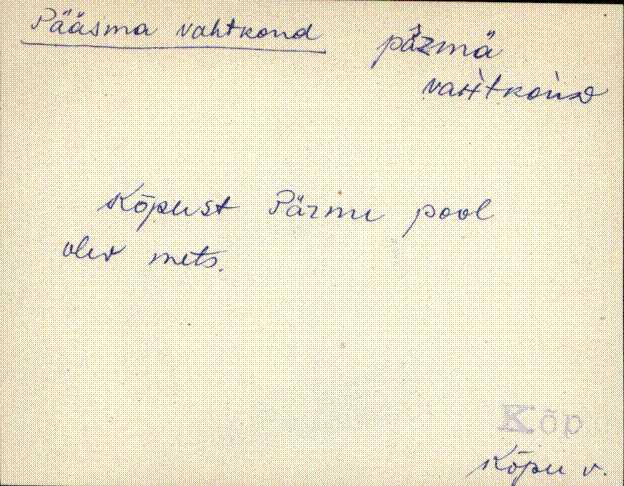 Pääsma vahtkond
pä̂zmä
vaʜ̀tkoǹᴅ
Kõpust Pärnu pool
olev mets.
Kõp
Kõpu v.